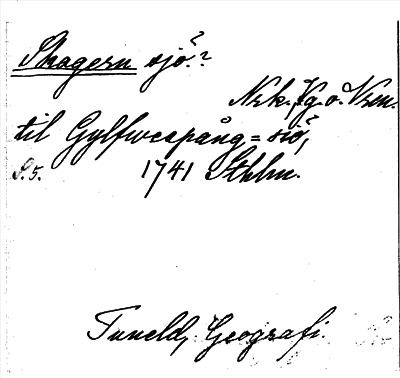 Skagern sjö.?
Nrk. Vg. o. Vrm.
til Gylfwespång = siö,
S. 5. 1741 Sthlm.
Tuneld, Geografi.